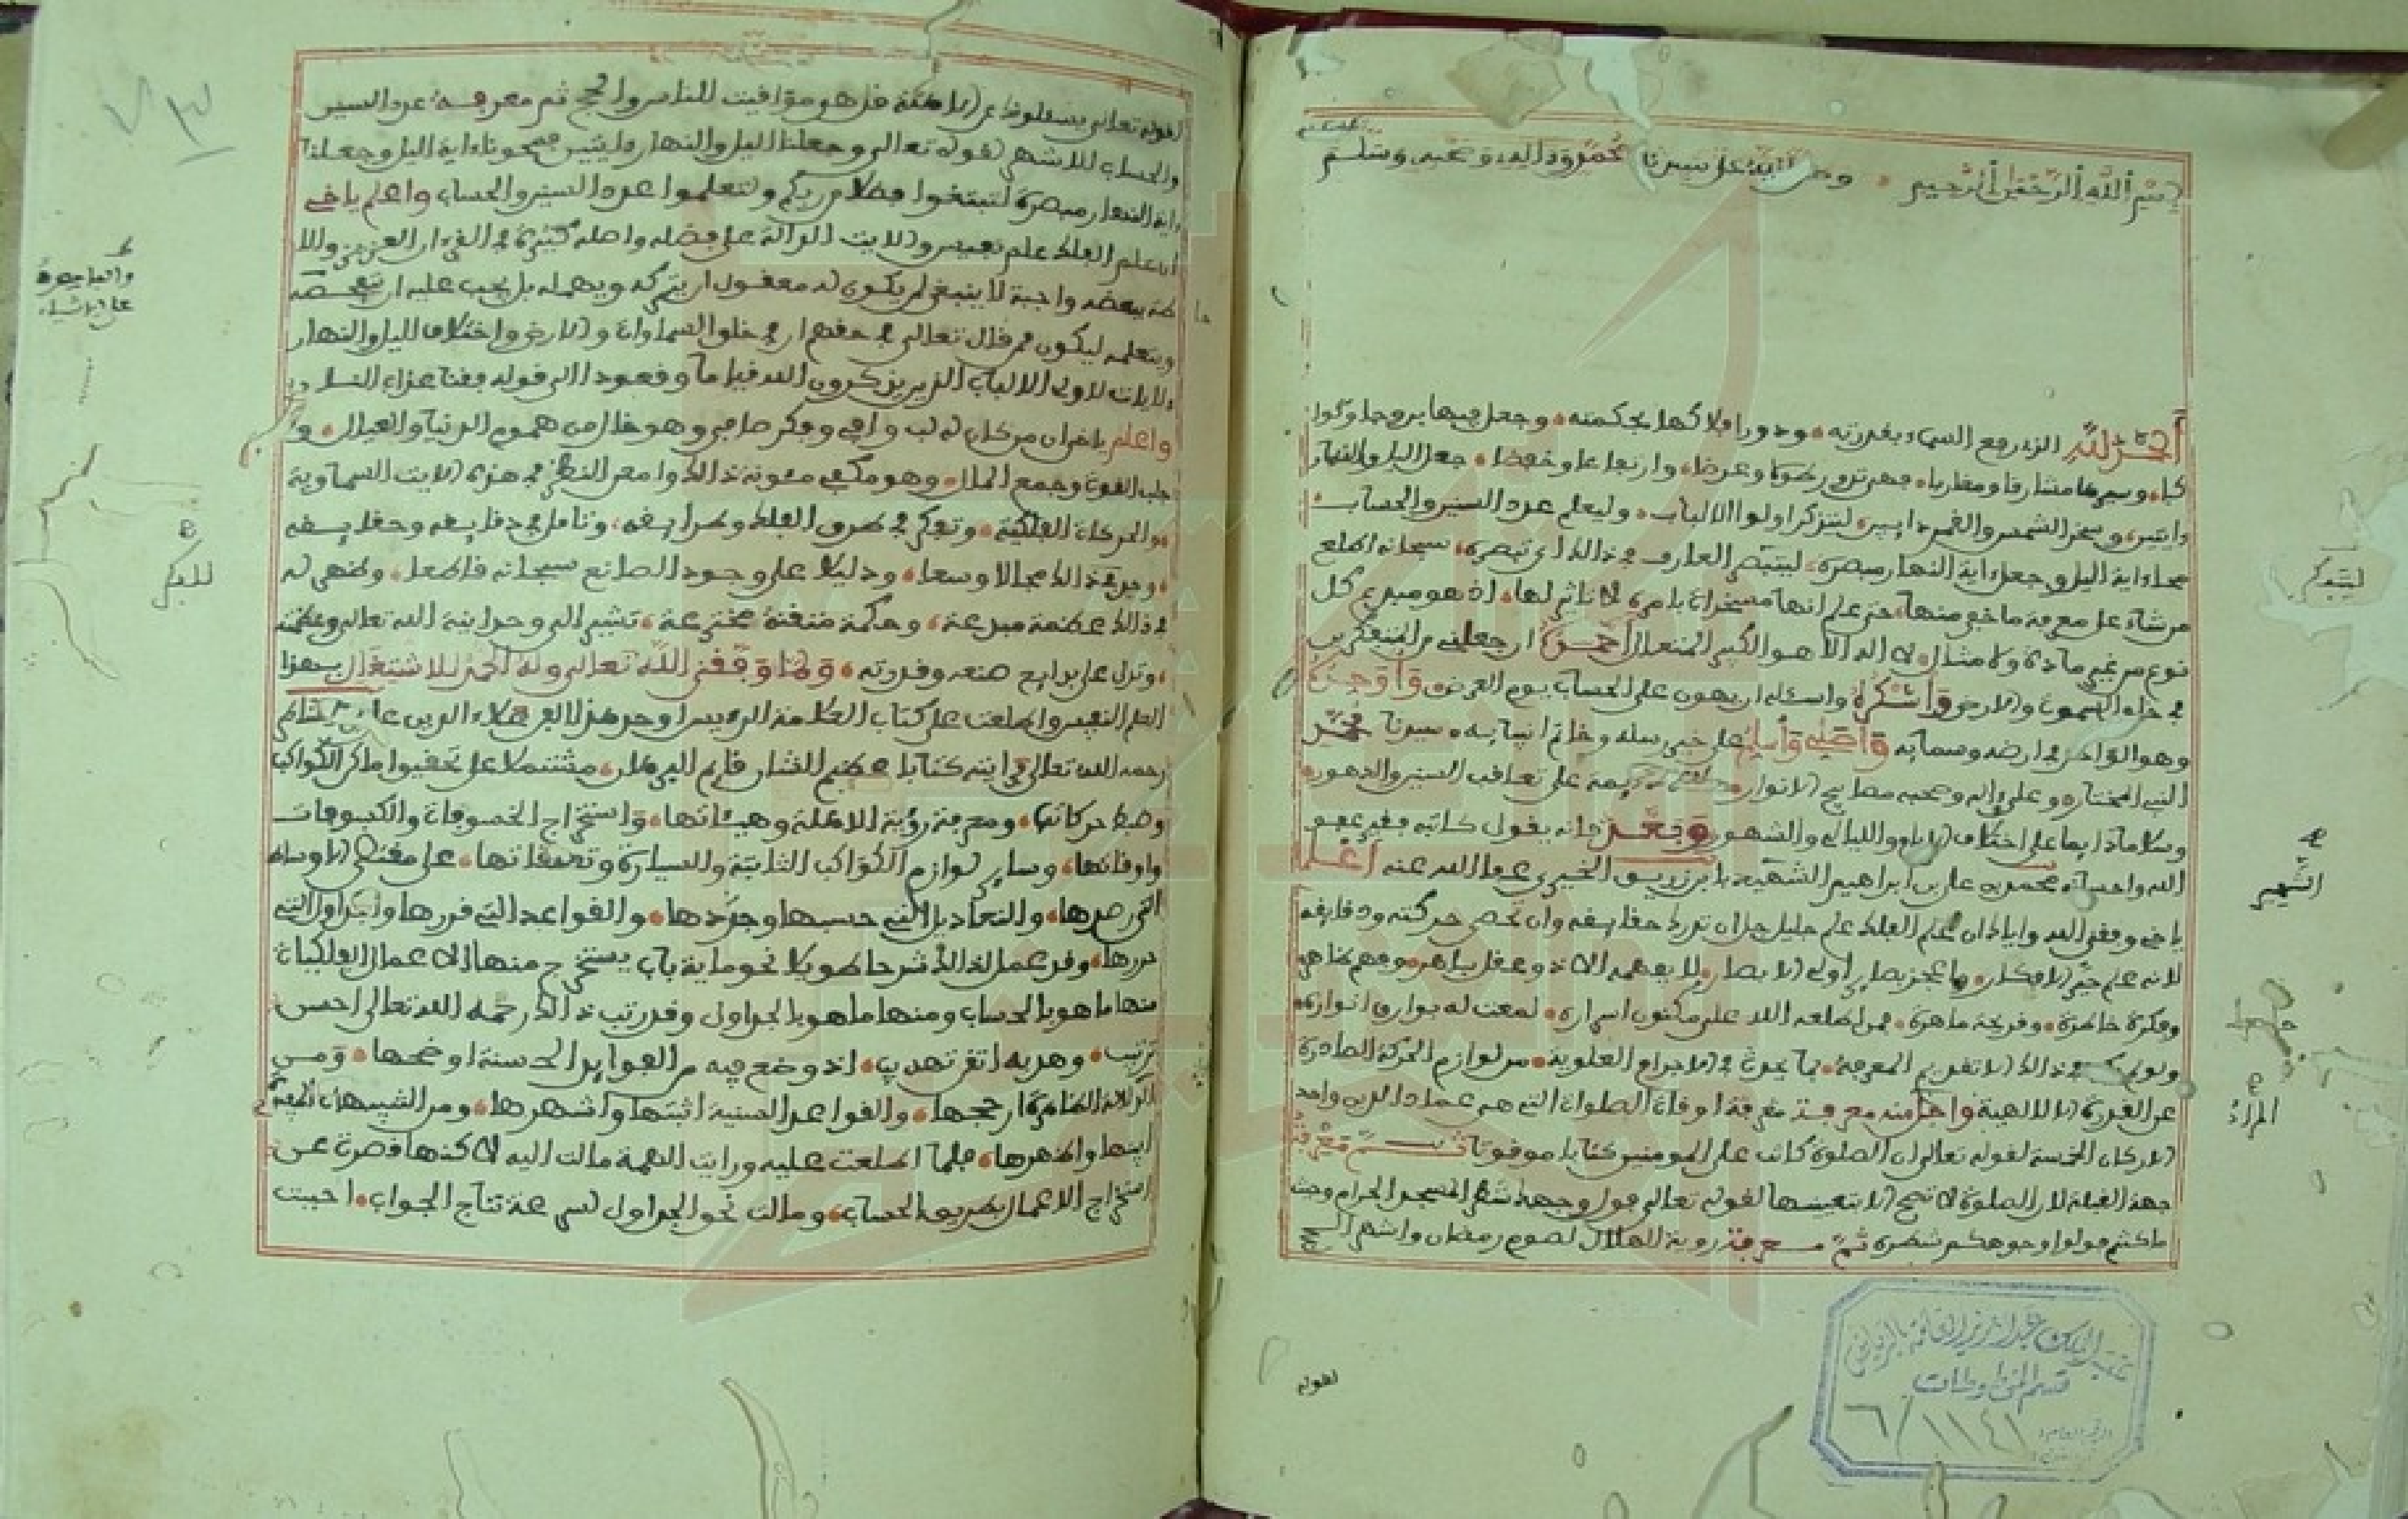 بسم الله الرحمن الرحيم وصلى الله على سيدنا محمد وءاله وصحبه وسلم
الحمد لله الذي رفع السماء بقدرته ودور افلاكها بحكمته وجعل فيها بروجا وكوا
كبا وسيرها مشارقا ومغاربا فهي تدور طولا وعرضا وارتفاعا وخفضا جعل اليل والنهار
ءايتين وسخر الشمس والقمر دايبين ليتذكر اولوا الالباب وليعلم عدد السنين والحساب
محا ءاية اليل وجعل ءاية النهار مبصرة ليتبصر العارف في ذالك اي تبصرة سبحانه اطلع
من شاء على معرفة ما خفي منها حتى علم انها مسخرات بامره لا تاثير لها اذ هو مبدع كل
نوع من غير مادة ولا مثال لا اله الا هو الكبير المتعال احمده ان جعلني من المتفكرين
في خلق السموت والارض واشكره واسئله ان يهون علي الحساب يوم العرض واوحده
وهو الواحد في ارضه وسمايه واصلي واسلم على خير رسله وخاتم انبيايه سيدنا محمد
النبي المختار وعلى ءاله وصحبه مصابيح الانوار صلاة دايمة على تعاقب السنين والدهور
وسلاما دايما على اختلاف الايام والليالي والشهور وبعد فانه يقول كاتبه فقير عفو
الله واحسانه محمد بن علي بن ابراهيم الشهير بابن زريق الخيري عفا الله عنه اعلم
ياخي وفقني الله واياك ان علم الفلك علم جليل جل ان تدرك حقايقه وان تحصى حركته ودقايقه
لانه علم حير الافكار وما عجز بصاير اولي الابصار لا يفهمه الا ذو عقل باهر وفهم ظاهر
وفكرة خاطرة وقريحة ماهرة فمن اطلعه الله على مكنون اسراره لمعت له بوارق انواره
ولو لم يكن في ذالك الا تقديم المعرفة بما يحدث في الاجرام العلوية من لوازم الحركة الصادرة
عن القدرة الالاهية واهم منه معرفة معرفة اوقات الصلوات التي هي عماد الدين واحد
الاركان الخمسة لقوله تعالى ان الصلوة كانت على المومنين كتابا موقوتا ثم معرفة
جهة القبلة لان الصلوة لا تصح الا بتعيينها لقوله تعالى فول وجهك شطر المسجد الحرام وحيث
ما كنتم فولوا وجوهكم شطره ثم معرفة روية الهلال لصوم رمضان واشهر الحج
لقوله
ليتذكر
الشهير
المراد
مكتبة الملك عبد العزيز العامة بالرياض
قسم المخطوطات
٦/١١٤١
لقوله تعالى يسئلونك عن الاهلة قل هي مواقيت للناس والحج ثم معرفة عدد السنين
والحساب للاشهر لقوله تعالى وجعلنا اليل والنهار ءايتين فمحونا ءاية اليل وجعلنا
ءاية النهار مبصرة لتبتغوا فضلا من ربكم ولتعلموا عدد السنين والحساب واعلم ياخي
ان علم الفلك علم نفيس والايت الدالة على فضله واصله كثيرة في القرءان العزيز والا
حاطة ببعضه واجبة لا ينبغي لمن يكون له معقول ان يتركه ويهمله بل يجب عليه ان يتفحصه
ويتعلمه ليكون ممن قال تعالى في حقهم ان في خلق السماوات والارض واختلاف الليل والنهار
ءلايات لاولى الالباب الذين يذكرون الله قياما وقعودا الى قوله وقنا عذاب النار
واعلم ياخي ان من كان له لب وافي وفكر صافي وهو خال من هموم الدنيا والعيال و
جلب القوت وجمع المال وهو مكفي مئونة ذالك وامعن النظر في هذه الايت السماوية
والحركات الفلكية وتفكر في طرق الفلك وطرايقه وتامل في دقايقه وحقايقه
وجد في ذالك مجالا وسعا ودليلا على وجود الصانع سبحانه قاطعا وظهر له
في ذالك عظمة مبدعة وحكمة متقنة مخترعة تشير الى وحدانية الله تعالى وعظمته
وتدل على بدايع صنعه وقدرته ولما وفقني الله تعالى وله الحمد للاشتغال بهذا
العلم النفيس واطلعت على كتاب العلامة الرءيس اوحد هذا الفن علاء الدين علي بن الشاطر
رحمه الله تعالى رايته كتابا عظيم الشان قايم البرهان مشتملا على تحقيق اماكن الكواكب
وضبط حركاتها ومعرفة رؤية الاهلة وهيئاتها واستخراج الخسوفات والكسوفات
واوقاتها وساير لوازم الكواكب الثابتة والسيارة وتعلقاتها على مقتضى الاوساط
التي رصدها والتعاديل التي حسبها وجردها والقواعد التي قررها والجداول التي
حررها وقد عمل لذالك شرحا طويلا نحو ماية باب يستخرج منها الاعمال الفلكيات
منها ما هو بالحساب ومنها ما هو بالجداول وقد رتب ذالك رحمه الله تعالى احسن
ترتيب وهذبه اتقن تهذيب اذ وضع فيه من الفوايد الحسنة اوضحها ومن
الدلالة الظاهرة ارجحها والقواعد المبينة اثبتها واشهرها ومن التنبيهات الخفية
ابينها واظهرها فلما اطلعت عليه ورايت الهمة مالت اليه لاكنها قصرت عن
استخراج الاعمال بطريق الحساب ومالت نحو الجداول لسرعة نتاج الجواب احببت